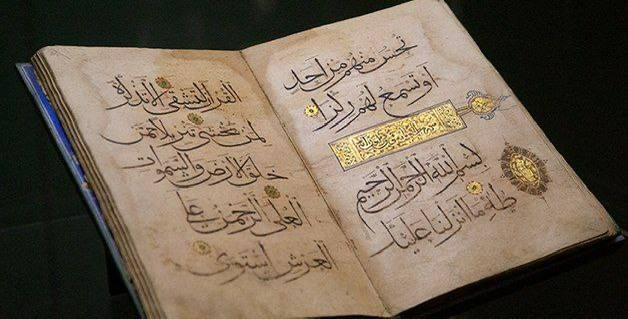 تحس منهم من احد
او تسمع لهم ركزا
بسم الله الرحمن الرحيم
طه ما انزلنا عليك
القران لتشقى الا تذكرة
لمن يخشى تنزيلا ممن
خلق الارض والسموات
العلى الرحمن على
العرش استوى